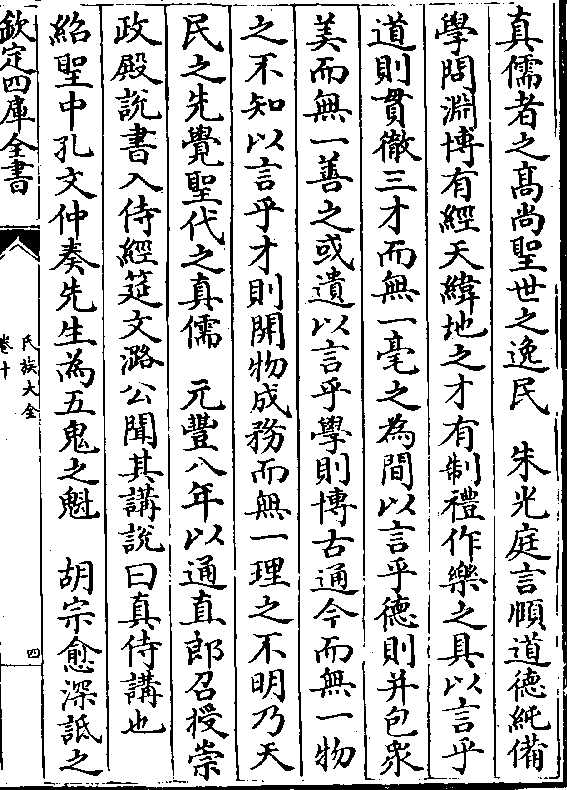 真儒者之髙尚聖世之逸民　朱光庭言頤道徳純備
學問淵博有經天緯地之才有制禮作樂之具以言乎
道則貫徹三才而無一毫之為間以言乎徳則并包衆
美而無一善之或遺以言乎學則博古通今而無一物
之不知以言乎才則開物成務而無一理之不明乃天
民之先覺聖代之真儒　元豐八年以通直郎召授崇
政殿說書入侍經筵文潞公聞其講說曰真侍講也
紹聖中孔文仲奏先生為五鬼之魁　胡宗愈深詆之
欽定四庫全書
氏族大全
卷十
四